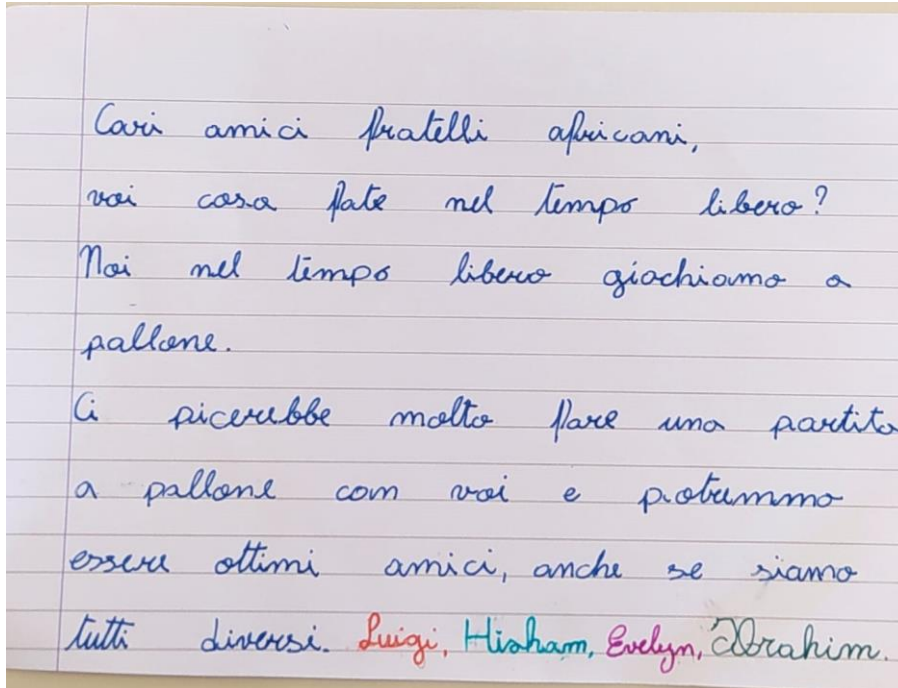 Cari amici fratelli africani,
voi cosa fate nel tempo libero?
Noi nel tempo libero giochiamo a
pallone.
Ci picerebbe molto fare una partita
a pallone com voi e potremmo
essere ottimi amici, anche se siamo
tutti diversi. Luigi, Hisham, Evelyn, Ibrahim.